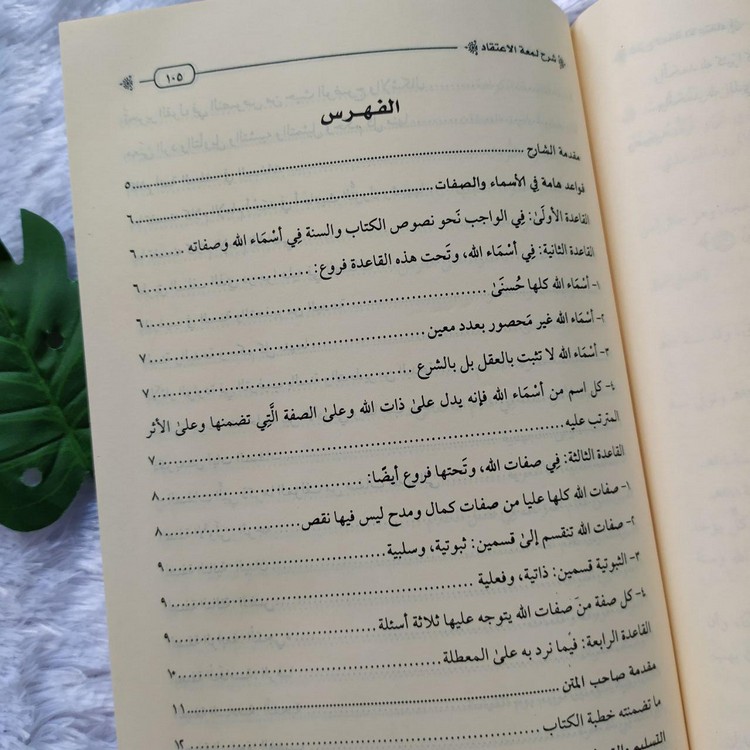 شرح لمعة الاعتقاد
١٠٥
الفهرس
مقدمة الشارح ........ ٥
قواعد هامة في الأسماء والصفات ........ ٦
القاعدة الأولَىٰ: فِي الواجب نَحو نصوص الكتاب والسنة فِي أسْمَاء الله وصفاته ........ ٦
القاعدة الثانية: فِي أسْمَاء الله، وتَحت هذه القاعدة فروع: ........ ٦
١- أسْمَاء الله كلها حُسنَىٰ ........ ٦
٢- أسْمَاء الله غير مَحصور بعدد معين ........ ٧
٣- أسْمَاء الله لا تثبت بالعقل بل بالشرع ........ ٧
٤- كل اسم من أسْمَاء الله فإنه يدل علىٰ ذات الله وعلىٰ الصفة الَّتِي تضمنها وعلىٰ الأثر
المترتب عليه ........ ٧
القاعدة الثالثة: فِي صفات الله، وتَحتها فروع أيضًا: ........ ٨
١- صفات الله كلها عليا من صفات كمال ومدح ليس فيها نقص ........ ٨
٢- صفات الله تنقسم إلىٰ قسمين: ثبوتية، وسلبية ........ ٩
٣- الثبوتية قسمين: ذاتية، وفعلية ........ ٩
٤- كل صفة من صفات الله يتوجه عليها ثلاثة أسئلة ........ ٩
القاعدة الرابعة: فيما نرد به علىٰ المعطلة ........ ١٠
مقدمة صاحب المتن ........ ١١
ما تضمنته خطبة الكتاب ........ ١٢